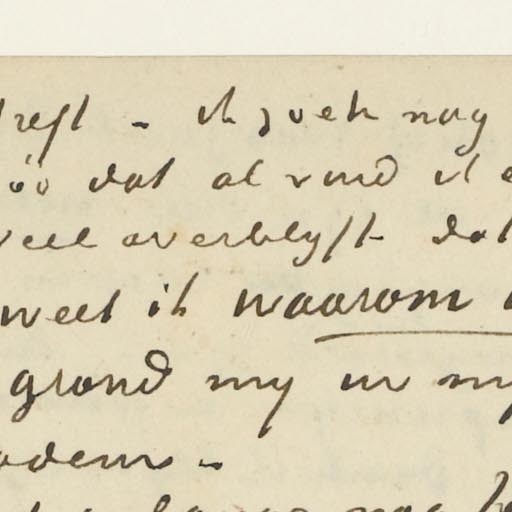 treft - ik zoek nog
zóó dat al vind ik e
veel overblyft dat
weet ik waarom
grond my in my
odem -